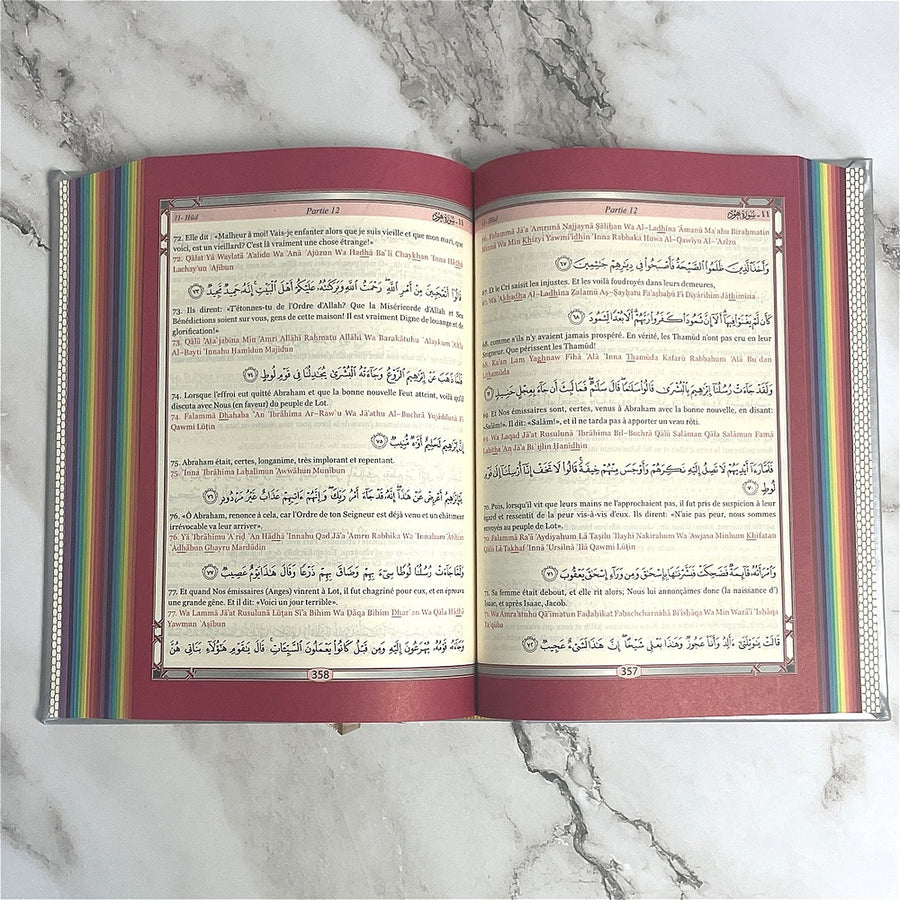 11- Hūd
Partie 12
11 - سورة هود
66. Falammā Jā'a 'Amrunā Najjaynā Şāliĥan Wa Al-Ladhīna 'Āmanū Ma`ahu Biraĥmatin
Minnā Wa Min Khizyi Yawmi'idhin 'Inna Rabbaka Huwa Al-Qawīyu Al-`Azīzu
وَأَخَذَ الَّذِينَ ظَلَمُوا الصَّيْحَةُ فَأَصْبَحُوا فِي دِيَارِهِمْ جَاثِمِينَ ٦٧
67. Et le Cri saisit les injustes. Et les voilà foudroyés dans leurs demeures,
67. Wa 'Akhadha Al-Ladhīna Žalamū Aş-Şayĥatu Fa'aşbaĥū Fī Diyārihim Jāthimīna
كَأَن لَّمْ يَغْنَوْا فِيهَا أَلَا إِنَّ ثَمُودَ كَفَرُوا رَبَّهُمْ أَلَا بُعْدًا لِّثَمُودَ ٦٨
68. comme s'ils n'y avaient jamais prospéré. En vérité, les Thamūd n'ont pas cru en leur
Seigneur. Que périssent les Thamūd!
68. Ka'an Lam Yaghnaw Fīhā 'Alā 'Inna Thamūda Kafarū Rabbahum 'Alā Bu`dan
Lithamūda
وَلَقَدْ جَاءَتْ رُسُلُنَا إِبْرَاهِيمَ بِالْبُشْرَىٰ قَالُوا سَلَامًا قَالَ سَلَامٌ فَمَا لَبِثَ أَن جَاءَ بِعِجْلٍ حَنِيذٍ
69. Et Nos émissaires sont, certes, venus à Abraham avec la bonne nouvelle, en disant:
«Salām!». Il dit: «Salām!», et il ne tarda pas à apporter un veau rôti.
69. Wa Laqad Jā'at Rusulunā 'Ibrāhīma Bil-Buchrá Qālū Salāman Qāla Salāmun Famā
Labitha 'An Jā'a Bi`ijlin Ĥanīdhin
فَلَمَّا رَأَىٰ أَيْدِيَهُمْ لَا تَصِلُ إِلَيْهِ نَكِرَهُمْ وَأَوْجَسَ مِنْهُمْ خِيفَةً قَالُوا لَا تَخَفْ إِنَّا أُرْسِلْنَا إِلَىٰ قَوْمِ
لُوطٍ ٧٠
70. Puis, lorsqu'il vit que leurs mains ne l'approchaient pas, il fut pris de suspicion à leur
égard et ressentit de la peur vis-à-vis d'eux. Ils dirent: «N'aie pas peur, nous sommes
envoyés au peuple de Lot».
70. Falammā Ra'á 'Aydiyahum Lā Taşilu 'Ilayhi Nakirahum Wa 'Awjasa Minhum Khīfatan
Qālū Lā Takhaf 'Innā 'Ursilnā 'Ilá Qawmi Lūţin
وَامْرَأَتُهُ قَائِمَةٌ فَضَحِكَتْ فَبَشَّرْنَاهَا بِإِسْحَاقَ وَمِن وَرَاءِ إِسْحَاقَ يَعْقُوبَ ٧١
71. Sa femme était debout, et elle rit alors; Nous lui annonçâmes donc (la naissance d')
Isaac, et après Isaac, Jacob.
71. Wa Amra'atuhu Qā'imatun Fađaĥikat Fabachcharnāhā Bi'isĥāqa Wa Min Warā'i 'Isĥāqa
Ya`qūba
قَالَتْ يَا وَيْلَتَىٰ أَأَلِدُ وَأَنَا عَجُوزٌ وَهَٰذَا بَعْلِي شَيْخًا إِنَّ هَٰذَا لَشَيْءٌ عَجِيبٌ ٧٢
357
11- Hūd
Partie 12
11 - سورة هود
72. Elle dit : «Malheur à moi! Vais-je enfanter alors que je suis vieille et que mon mari, que
voici, est un vieillard? C'est là vraiment une chose étrange!»
72. Qālat Yā Waylatá 'A'alidu Wa 'Anā `Ajūzun Wa Hadhā Ba`lī Chaykhan 'Inna Hādhā
Lachay'un `Ajībun
قَالُوا أَتَعْجَبِينَ مِنْ أَمْرِ اللَّهِ رَحْمَتُ اللَّهِ وَبَرَكَاتُهُ عَلَيْكُمْ أَهْلَ الْبَيْتِ إِنَّهُ حَمِيدٌ مَّجِيدٌ ٧٣
73. Ils dirent: «T'étonnes-tu de l'Ordre d'Allah? Que la Miséricorde d'Allah et Ses
Bénédictions soient sur vous, gens de cette maison! Il est vraiment Digne de louange et de
glorification!»
73. Qālū 'Ata`jabīna Min 'Amri Allāhi Raĥmatu Allāhi Wa Barakātuhu `Alaykum 'Ahla
Al-Bayti 'Innahu Ĥamīdun Majīdun
فَلَمَّا ذَهَبَ عَنْ إِبْرَاهِيمَ الرَّوْعُ وَجَاءَتْهُ الْبُشْرَىٰ يُجَادِلُنَا فِي قَوْمِ لُوطٍ ٧٤
74. Lorsque l'effroi eut quitté Abraham et que la bonne nouvelle l'eut atteint, voilà qu'il
discuta avec Nous (en faveur) du peuple de Lot.
74. Falammā Dhahaba `An 'Ibrāhīma Ar-Raw`u Wa Jā'athu Al-Buchrá Yujādilunā Fī
Qawmi Lūţin
إِنَّ إِبْرَاهِيمَ لَحَلِيمٌ أَوَّاهٌ مُّنِيبٌ ٧٥
75. Abraham était, certes, longanime, très implorant et repentant.
75. 'Inna 'Ibrāhīma Laĥalīmun 'Awwāhun Munībun
يَا إِبْرَاهِيمُ أَعْرِضْ عَنْ هَٰذَا إِنَّهُ قَدْ جَاءَ أَمْرُ رَبِّكَ وَإِنَّهُمْ آتِيهِمْ عَذَابٌ غَيْرُ مَرْدُودٍ ٧٦
76. «Ô Abraham, renonce à cela, car l'Ordre de ton Seigneur est déjà venu et un châtiment
irrévocable va leur arriver».
76. Yā 'Ibrāhīmu 'A`riđ `An Hādhā 'Innahu Qad Jā'a 'Amru Rabbika Wa 'Innahum 'Ātīhim
`Adhābun Ghayru Mardūdin
وَلَمَّا جَاءَتْ رُسُلُنَا لُوطًا سِيءَ بِهِمْ وَضَاقَ بِهِمْ ذَرْعًا وَقَالَ هَٰذَا يَوْمٌ عَصِيبٌ ٧٧
77. Et quand Nos émissaires (Anges) vinrent à Lot, il fut chagriné pour eux, et en éprouva
une grande gêne. Et il dit: «Voici un jour terrible».
77. Wa Lammā Jā'at Rusulunā Lūţan Sī'a Bihim Wa Đāqa Bihim Dhar`an Wa Qala Hādhā
Yawmun `Aşībun
وَجَاءَهُ قَوْمُهُ يُهْرَعُونَ إِلَيْهِ وَمِن قَبْلُ كَانُوا يَعْمَلُونَ السَّيِّئَاتِ قَالَ يَا قَوْمِ هَٰؤُلَاءِ بَنَاتِي هُنَّ
358